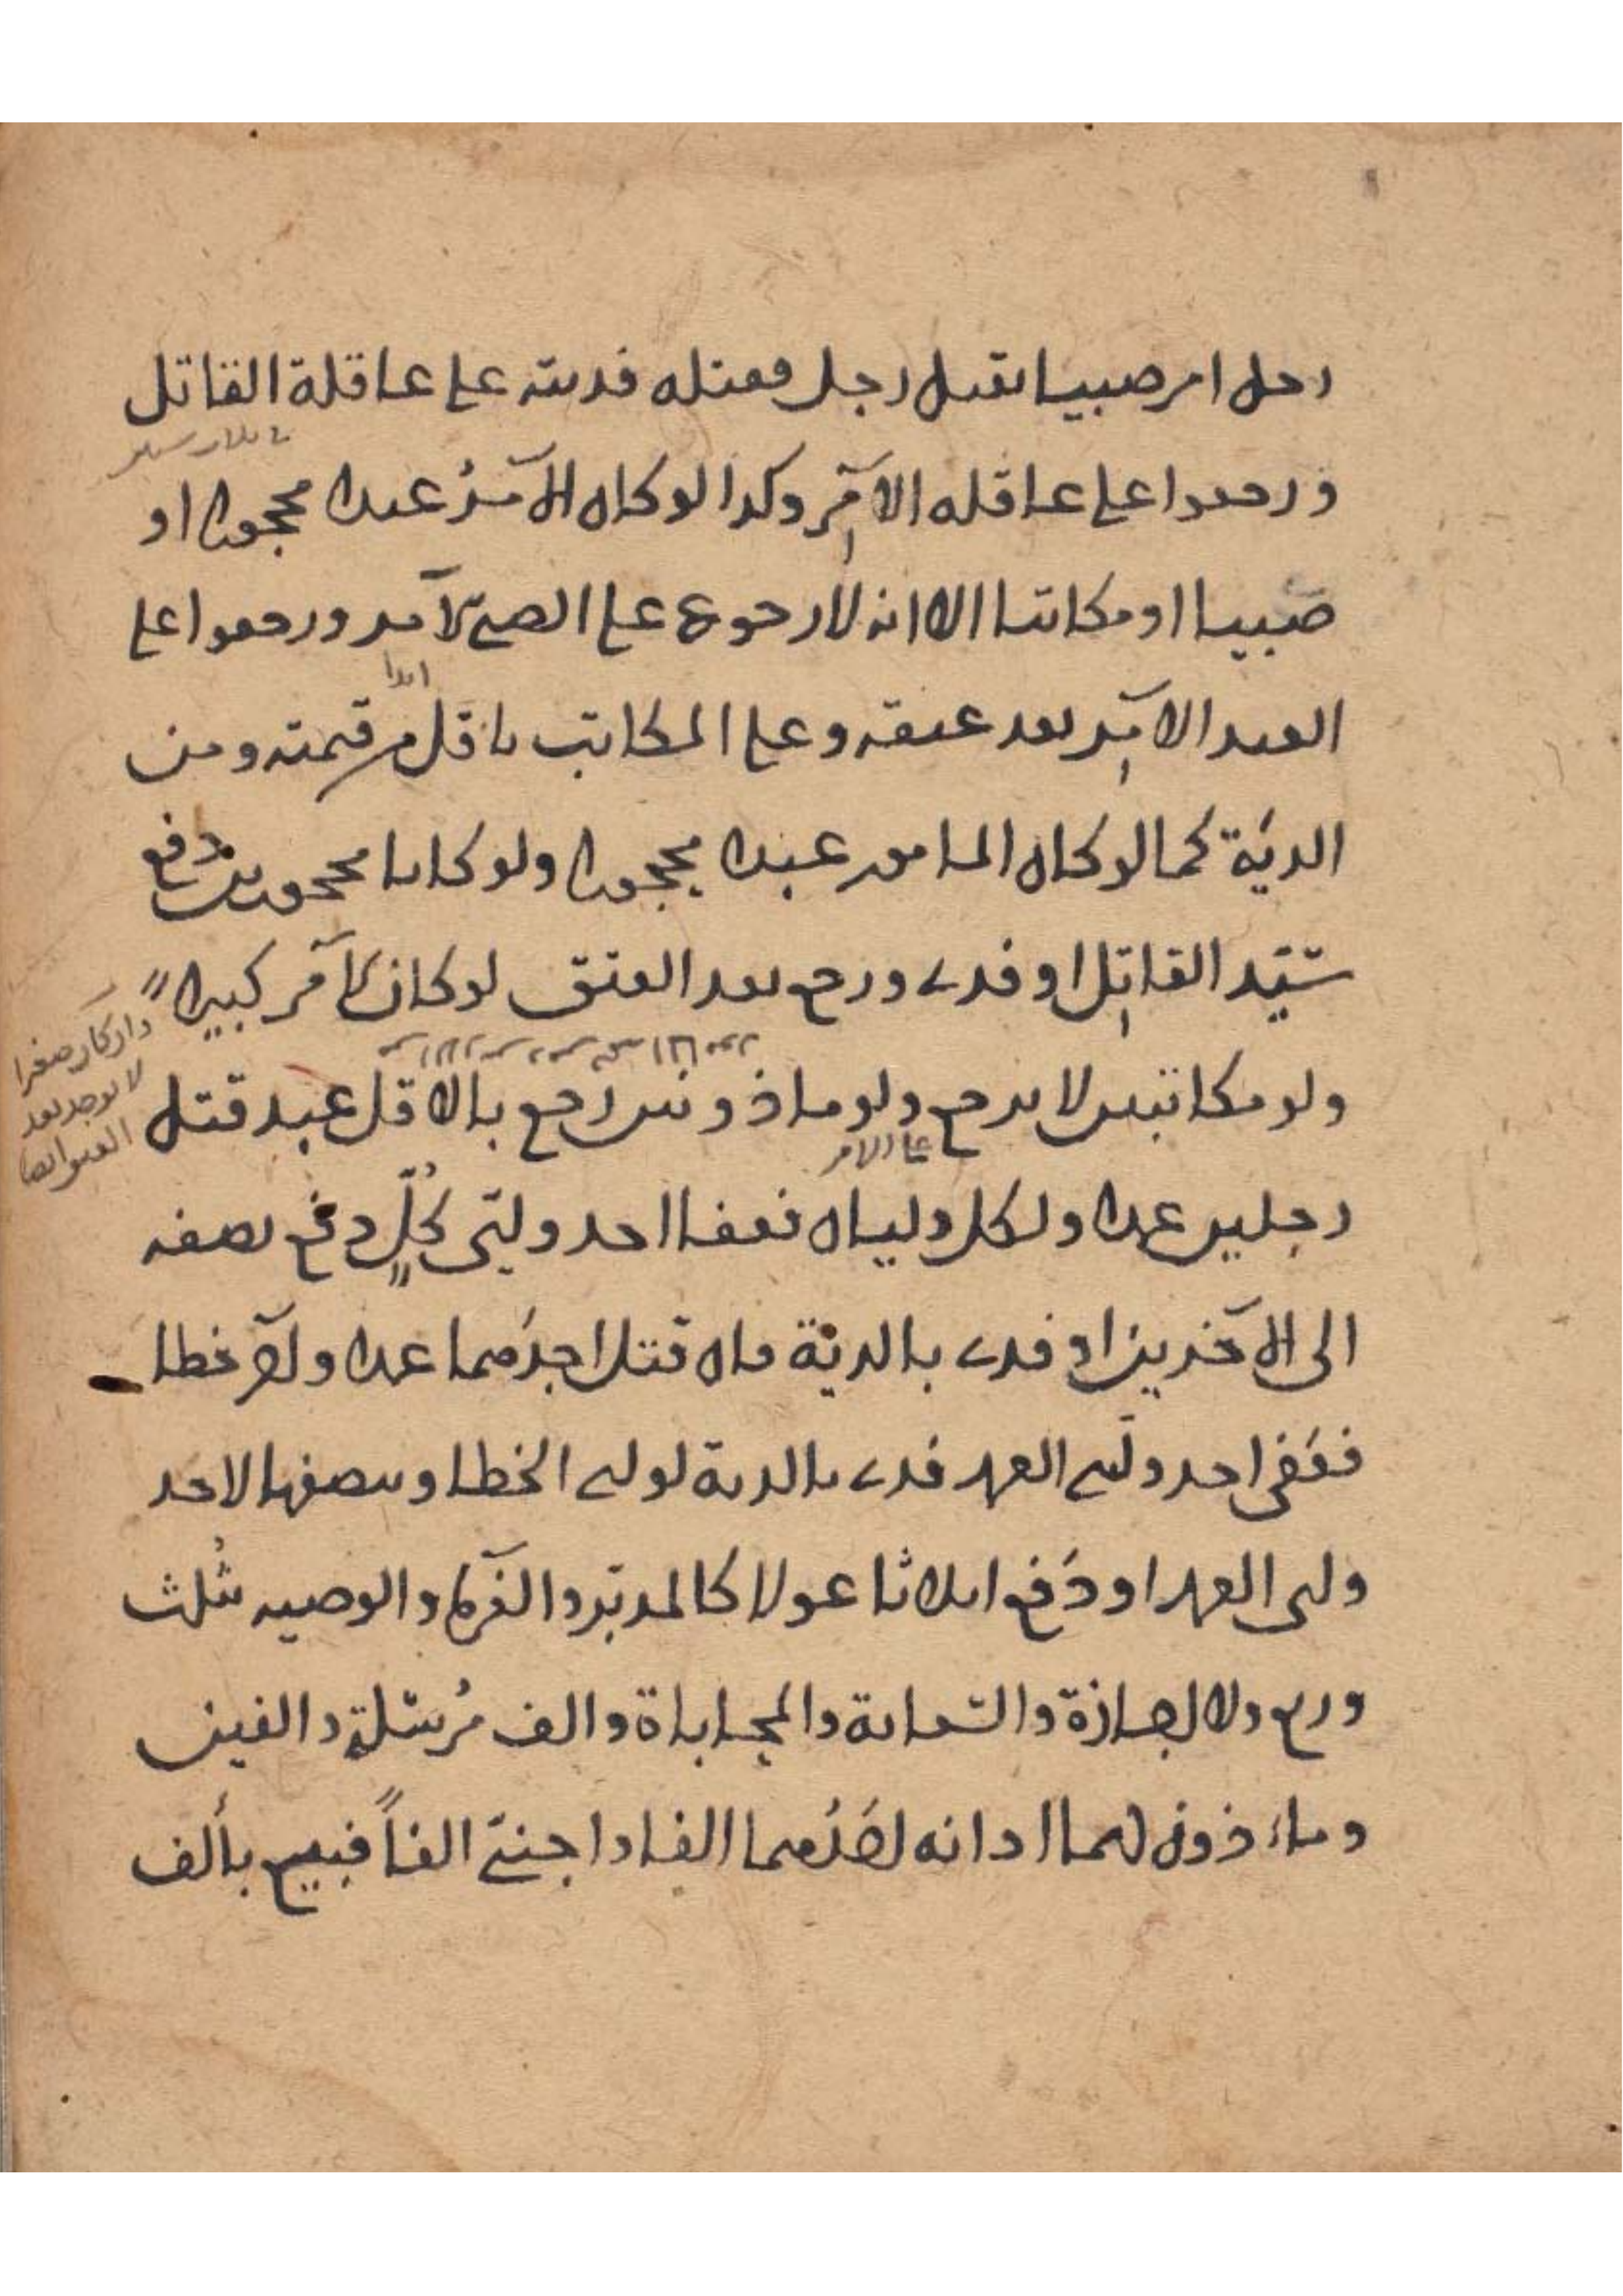 رجل امر صبيا بقتل رجل فقتله فديته على عاقلة القاتل
ورجعوا على عاقله الآمر وكذا لو كان الآمر عبدا محجورا او
صبيا او مكاتبا الا انه لا رجوع على الصبي الآمر ورجعوا على
العبد الآمر بعد عتقه وعلى المكاتب باقل من قيمته ومن
الدية كما لو كان المامور عبدا محجورا ولو كانا محجورين دفع
سيد القاتل او فدى ورجع بعد العتق لو كان الآمر كبيرا
ولو مكاتبين لا يرجع ولو ماذونين رجع بالاقل عبد قتل
رجلين عمدا ولكل وليان فعفا احد وليي كل دفع نصفه
الى الآخرين او فدى بالدية فان قتل احدهما عمدا والآخر خطا
فعفى احد وليي العمد فدى بالدية لولي الخطا وبنصفها لاحد
ولي العمد او دفع اثلاثا عولا كالمدبر والغرما والوصيه بثلث
وربع ولا اجازة والسعاية والمحاباة والف مرسلة والفين
وماذون لهما ادانه احدهما الفا واجنبي الفاً فبيع بألف
على الآمر
وان كان صغيرا
لا يوجد بعد
العتق ايضا